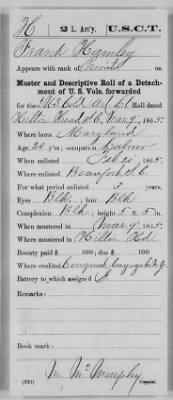 H 2 L. Art'y. U.S.C.T.
Frank Hamley
Appears with rank of Private on
Muster and Descriptive Roll of a Detach-
ment of U. S. Vols. forwarded
for 2 U.S. Cold Art Lt Roll dated
Hilton Head S.C. Mar 9, 1865.
Where born Maryland
Age 22 y'rs; occupation Laborer
When enlisted Feb. 20, 1865.
Where enlisted Beaufort S.C.
For what period enlisted 3 years.
Eyes Blk; hair Blk
Complexion Blk; height 5 ft. 5 in.
When mustered in Mar 9, 1865.
Where mustered in Hilton Hd
Bounty paid $ 100; due $ 100
Where credited Cayuga N.Y.
Battery to which assigned
Remarks:
Book mark:
M. McMurphy
Copyist.